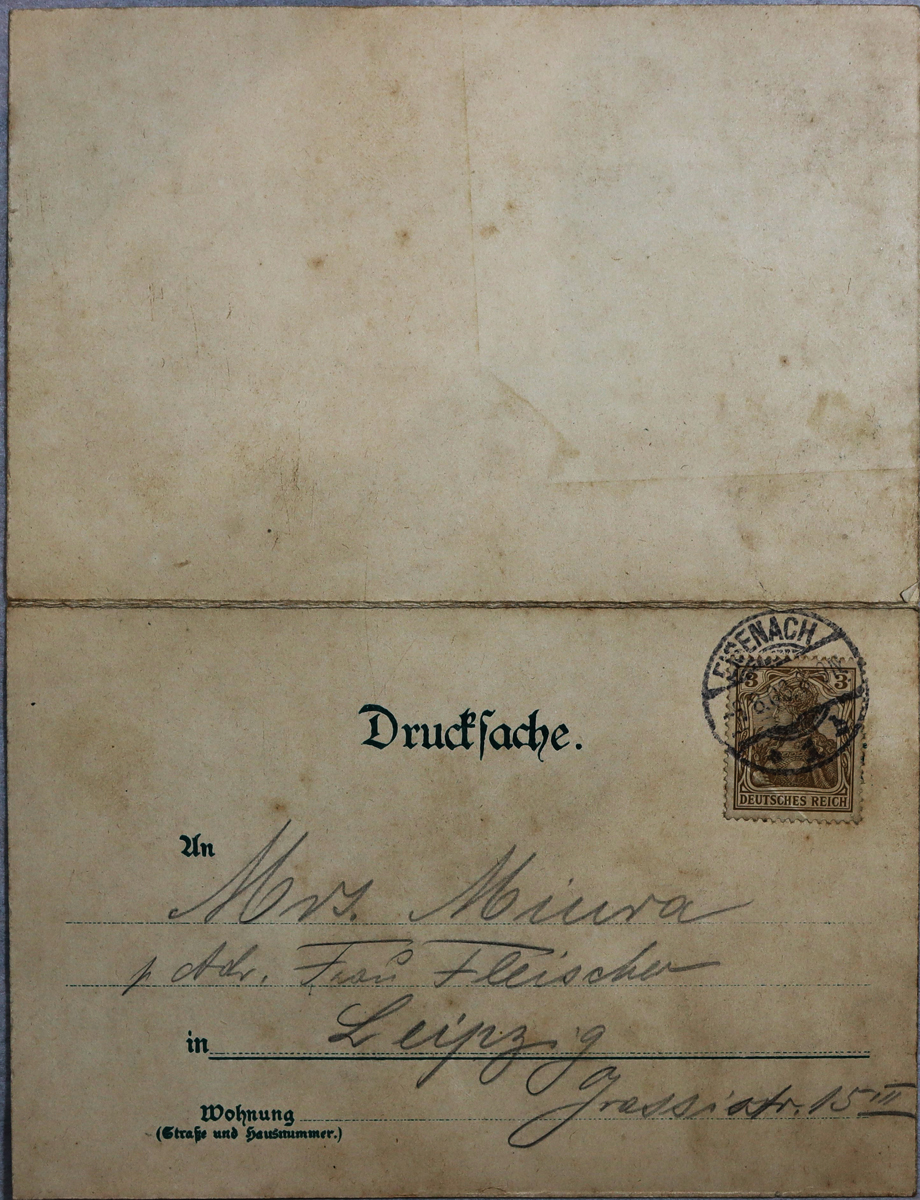 EISENACH
3 3
DEUTSCHES REICH
Drucksache.
An
Mrs. Miura
p. Adr. Frau Fleischer
in Leipzig
Grassistr. 15 III
Wohnung
(Straße und Hausnummer.)